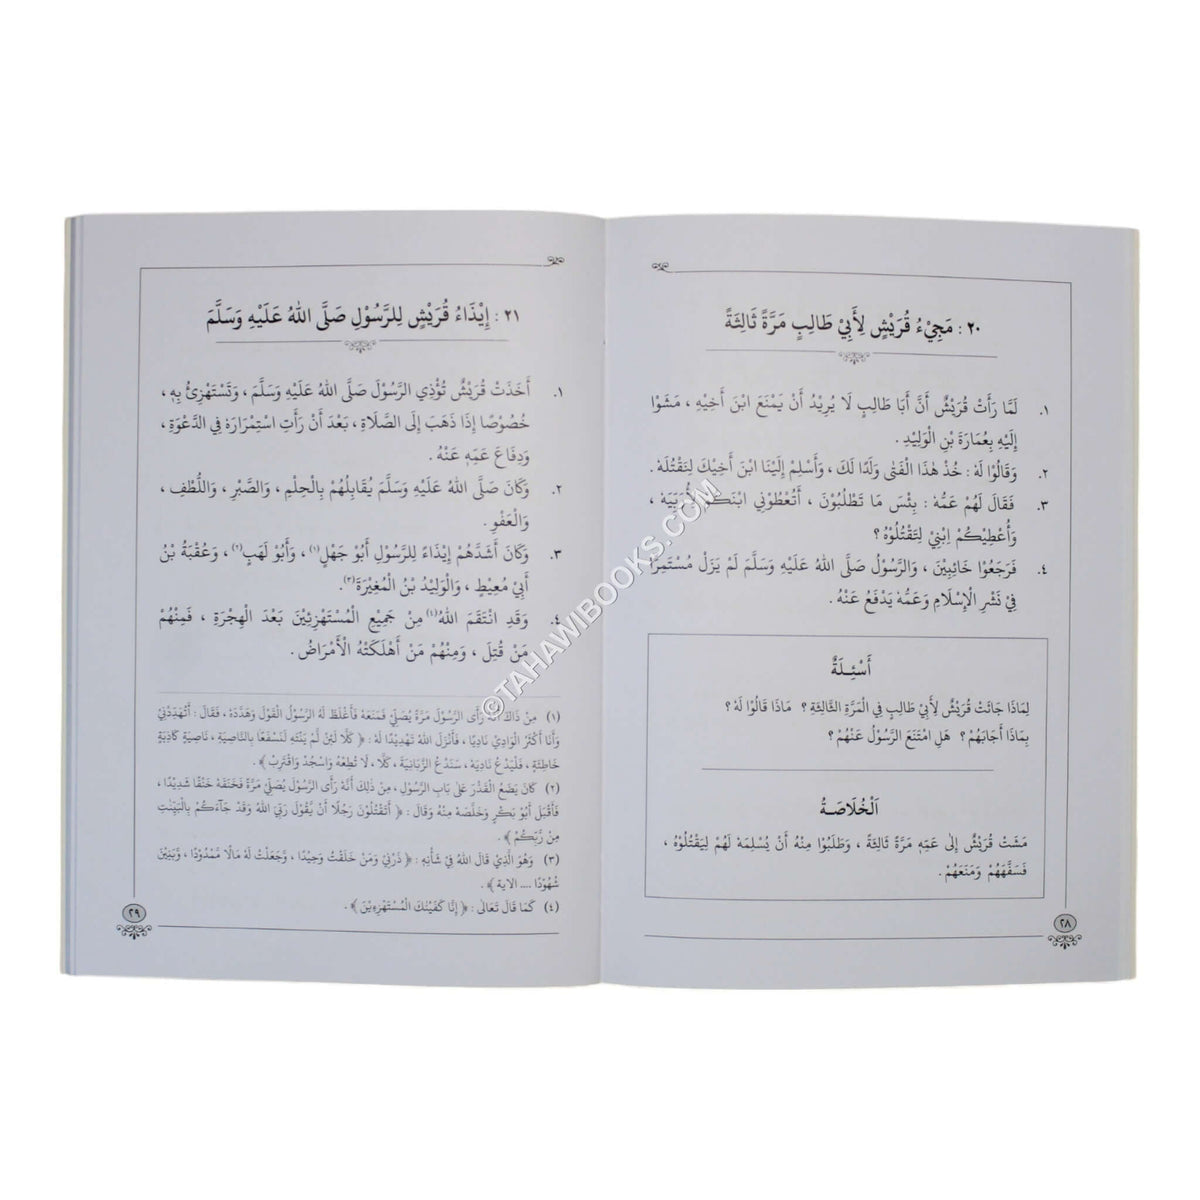 ٢٠ : مَجِيْءُ قُرَيْشٍ لِأَبِيْ طَالِبٍ مَرَّةً ثَالِثَةً
١. لَمَّا رَأَتْ قُرَيْشٌ أَنَّ أَبَا طَالِبٍ لَا يُرِيْدُ أَنْ يَمْنَعَ ابْنَ أَخِيْهِ ، مَشَوْا
إِلَيْهِ بِعُمَارَةَ بْنِ الْوَلِيْدِ .
٢. وَقَالُوْا لَهُ : خُذْ هٰذَا الْفَتٰى وَلَدًا لَكَ ، وَأَسْلِمْ إِلَيْنَا ابْنَ أَخِيْكَ لِنَقْتُلَهُ .
٣. فَقَالَ لَهُمْ عَمُّهُ : بِئْسَ مَا تَطْلُبُوْنَ ، أَتُعْطُوْنِي ابْنَكُمْ أُرَبِّيْهِ ،
وَأُعْطِيْكُمْ اِبْنِيْ لِتَقْتُلُوْهُ ؟
٤. فَرَجَعُوْا خَائِبِيْنَ ، وَالرَّسُوْلُ صَلَّى اللهُ عَلَيْهِ وَسَلَّمَ لَمْ يَزَلْ مُسْتَمِرًّا
فِيْ نَشْرِ الْإِسْلَامِ وَعَمُّهُ يَدْفَعُ عَنْهُ .
أَسْـئِـلَةٌ
لِمَاذَا جَائَتْ قُرَيْشٌ لِأَبِيْ طَالِبٍ فِي الْمَرَّةِ الثَّالِثَةِ ؟ مَاذَا قَالُوْا لَهُ ؟
بِمَاذَا أَجَابَهُمْ ؟ هَلِ امْتَنَعَ الرَّسُوْلُ عَنْهُمْ ؟
اَلْخُلَاصَـةُ
مَشَتْ قُرَيْشٌ إِلَى عَمِّهِ مَرَّةً ثَالِثَةً ، وَطَلَبُوْا مِنْهُ أَنْ يُسْلِمَهُ لَهُمْ لِيَقْتُلُوْهُ ،
فَسَفَّهَهُمْ وَمَنَعَهُمْ .
٢٨
٢١ : إِيْذَاءُ قُرَيْشٍ لِلرَّسُوْلِ صَلَّى اللهُ عَلَيْهِ وَسَلَّمَ
١. أَخَذَتْ قُرَيْشٌ تُؤْذِي الرَّسُوْلَ صَلَّى اللهُ عَلَيْهِ وَسَلَّمَ ، وَتَسْتَهْزِئُ بِهِ ،
خُصُوْصًا إِذَا ذَهَبَ إِلَى الصَّلَاةِ ، بَعْدَ أَنْ رَأَتِ اسْتِمْرَارَهُ فِي الدَّعْوَةِ ،
وَدِفَاعَ عَمِّهِ عَنْهُ .
٢. وَكَانَ صَلَّى اللهُ عَلَيْهِ وَسَلَّمَ يُقَابِلُهُمْ بِالْحِلْمِ ، وَالصَّبْرِ ، وَاللُّطْفِ ،
وَالْعَفْوِ .
٣. وَكَانَ أَشَدَّهُمْ إِيْذَاءً لِلرَّسُوْلِ أَبُوْ جَهْلٍ(١) ، وَأَبُوْ لَهَبٍ(٢) ، وَعُقْبَةُ بْنُ
أَبِيْ مُعِيْطٍ ، وَالْوَلِيْدُ بْنُ الْمُغِيْرَةِ(٣).
٤. وَقَدِ انْتَقَمَ اللهُ(٤) مِنْ جَمِيْعِ الْمُسْتَهْزِئِيْنَ بَعْدَ الْهِجْرَةِ ، فَمِنْهُمْ
مَنْ قُتِلَ ، وَمِنْهُمْ مَنْ أَهْلَكَتْهُ الْأَمْرَاضُ .
(١) مِنْ ذَلِكَ أَنَّهُ رَأَى الرَّسُوْلَ مَرَّةً يُصَلِّيْ فَمَنَعَهُ فَأَغْلَظَ لَهُ الرَّسُوْلُ الْقَوْلَ وَهَدَّدَهُ ، فَقَالَ : أَتُهَدِّدُنِيْ
وَأَنَا أَكْثَرُ الْوَادِيْ نَادِيًا ، فَأَنْزَلَ اللهُ تَهْدِيْدًا لَهُ : ﴿ كَلَّا لَئِنْ لَمْ يَنْتَهِ لَنَسْفَعًا بِالنَّاصِيَةِ ، نَاصِيَةٍ كَاذِبَةٍ
خَاطِئَةٍ ، فَلْيَدْعُ نَادِيَهُ ، سَنَدْعُ الزَّبَانِيَةَ ، كَلَّا ، لَا تُطِعْهُ وَاسْجُدْ وَاقْتَرِبْ ﴾ .
(٢) كَانَ يَضَعُ الْقَذَرَ عَلَى بَابِ الرَّسُوْلِ ، مِنْ ذَلِكَ أَنَّهُ رَأَى الرَّسُوْلَ يُصَلِّيْ مَرَّةً فَخَنَقَهُ خَنْقًا شَدِيْدًا ،
فَأَقْبَلَ أَبُوْ بَكْرٍ وَخَلَّصَهُ مِنْهُ وَقَالَ : ﴿ أَتَقْتُلُوْنَ رَجُلًا أَنْ يَقُوْلَ رَبِّيَ اللهُ وَقَدْ جَآءَكُمْ بِالْبَيِّنٰتِ
مِنْ رَّبِّكُمْ ﴾ .
(٣) وَهُوَ الَّذِيْ قَالَ اللهُ فِيْ شَأْنِهِ : ﴿ ذَرْنِيْ وَمَنْ خَلَقْتُ وَحِيْدًا ، وَّجَعَلْتُ لَهُ مَالًا مَّمْدُوْدًا ، وَّبَنِيْنَ
شُهُوْدًا .... الاية ﴾ .
(٤) كَمَا قَالَ تَعَالَى : ﴿ إِنَّا كَفَيْنٰكَ الْمُسْتَهْزِءِيْنَ ﴾ .
٢٩
©TAHAWIBOOKS.COM